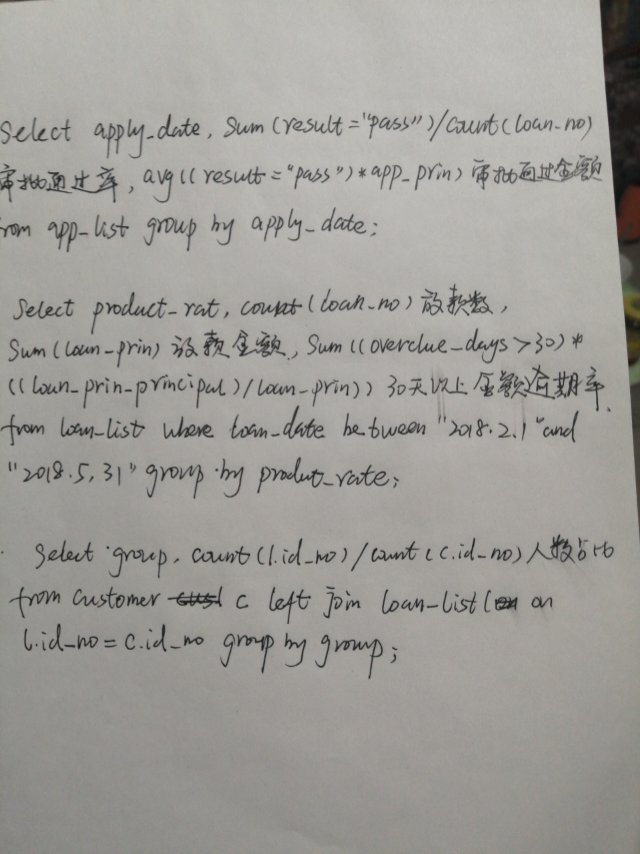 Select apply_date, Sum(result="pass")/count(loan_no)
审批通过率, avg((result="pass")*app_prin) 审批通过金额
from app_list group by apply_date;
Select product_rat, count(loan_no) 放款数,
Sum(loan_prin) 放款金额, Sum((overdue_days>30)*
((loan_prin-principal)/loan_prin)) 30天以上金额逾期率
from loan_list where loan_date between "2018.2.1" and
"2018.5.31" group by produt_rate;
Select group, count(l.id_no)/count(c.id_no) 人数占比
from customer c left join loan_list l on
l.id_no=c.id_no group by group;